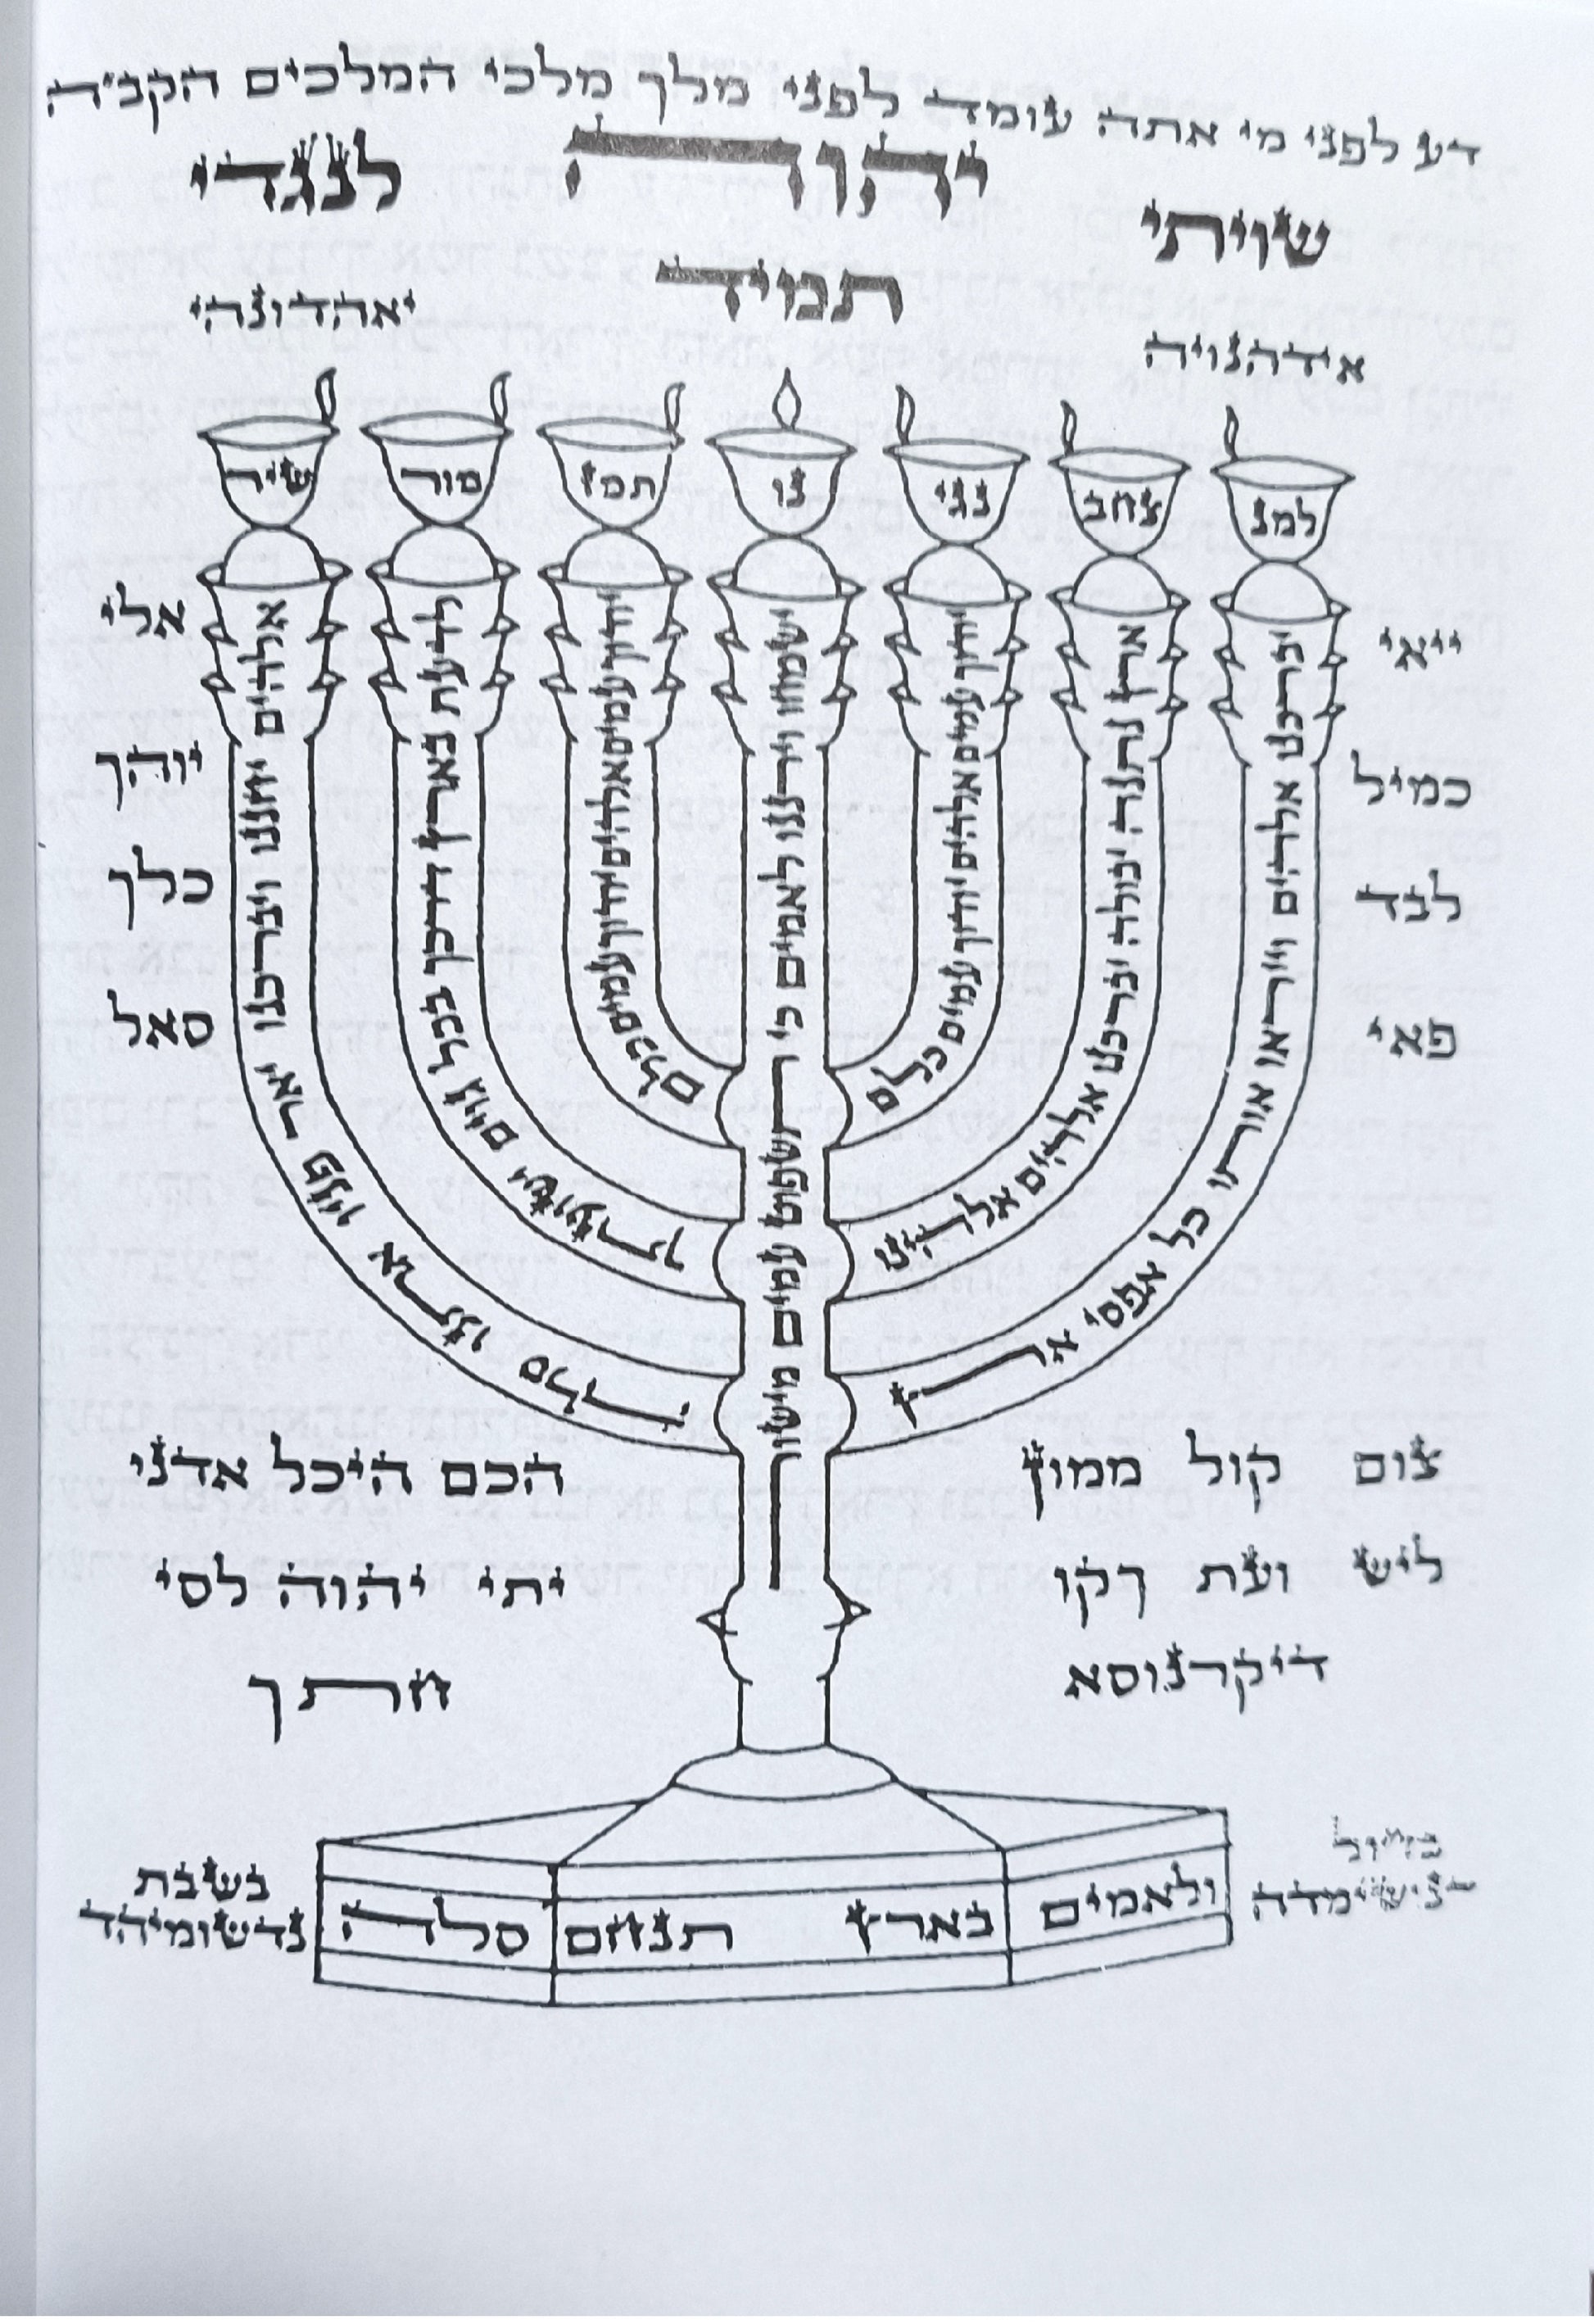 דע לפני מי אתה עומד לפני מלך מלכי המלכים הקב״ה
שויתי יהוה לנגדי
תמיד
אידהנויה יאהדונהי
למנ צחב נגי נו תמז מור שיר
יברכנו אלהים וייראו אותו כל אפסי ארץ
ארץ נתנה יבולה יברכנו אלהים אלהינו
יודוך עמים אלהים יודוך עמים כלם
ישמחו וירננו לאמים כי תשפוט עמים מישור
יודוך עמים אלהים יודוך עמים כלם
לדעת בארץ דרכך בכל גוים ישועתך
אלהים יחננו ויברכנו יאר פניו אתנו סלה
ייאי אלי
כמיל יוהך
לבד כלך
פאי סאל
צום קול ממון הכם היכל אדני
ליש ועת דקו יתי יהוה לסי
דיקרנוסא חתך
בשבת
נדשומיהד
ולאמים בארץ תנחם סלה